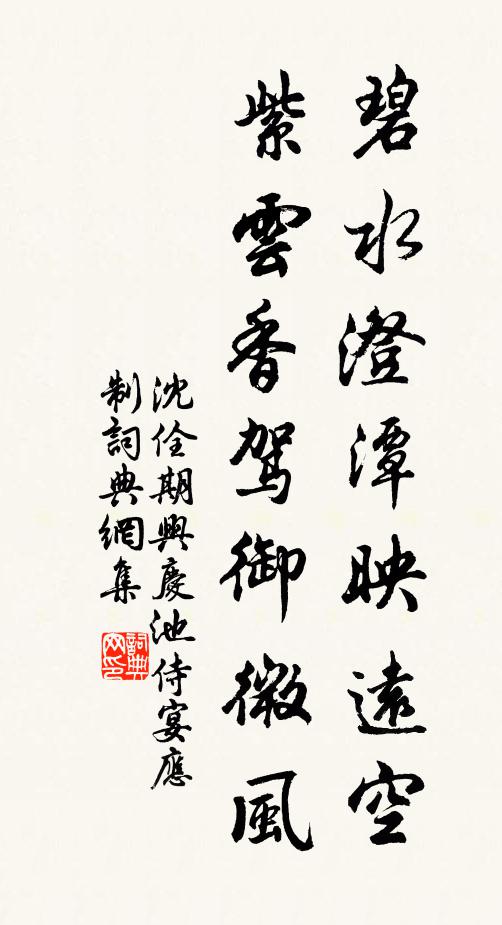 碧水澄潭映遠空
紫雲香駕御微風
沈佺期興慶池侍宴應
制詞典網集
詞典网印